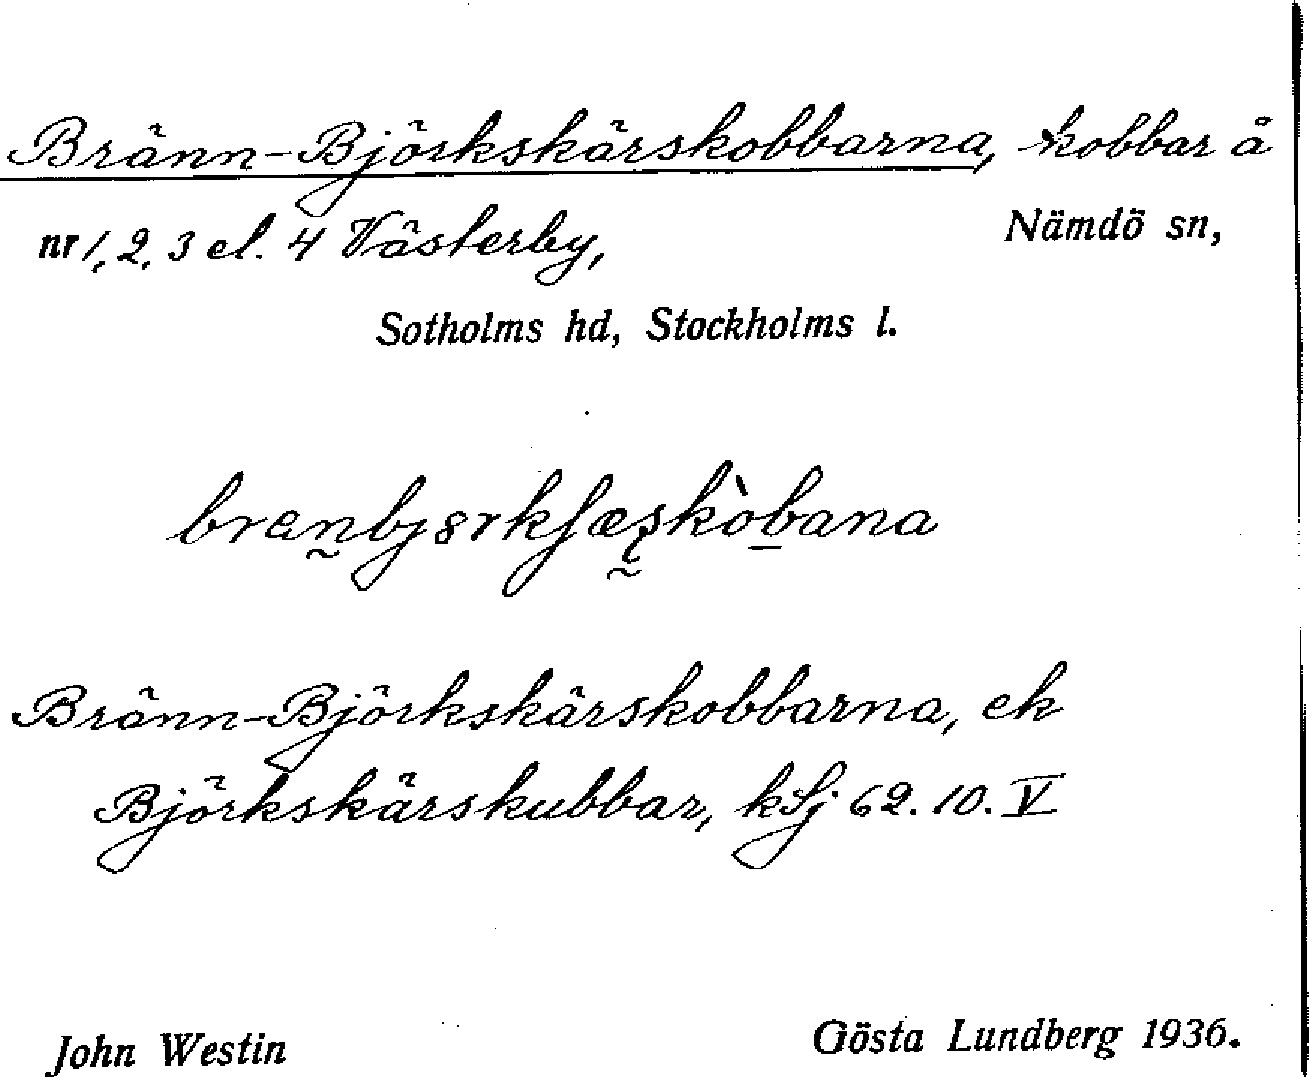 Bränn-Björkskärskobbarna, kobbar å
nr 1, 2, 3 el. 4 Västerby, Nämdö sn,
Sotholms hd, Stockholms l.
Bränn-Björkskärskobbarna, ek
Björkskärskubbar, kSj 62. 10. V
John Westin Gösta Lundberg 1936.